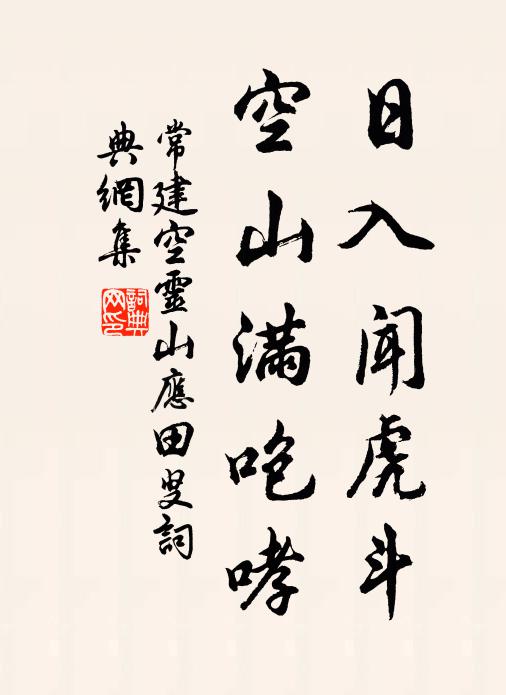 日入闻虎斗
空山满咆哮
常建空靈山應田叟詞
典網集
詞典网印